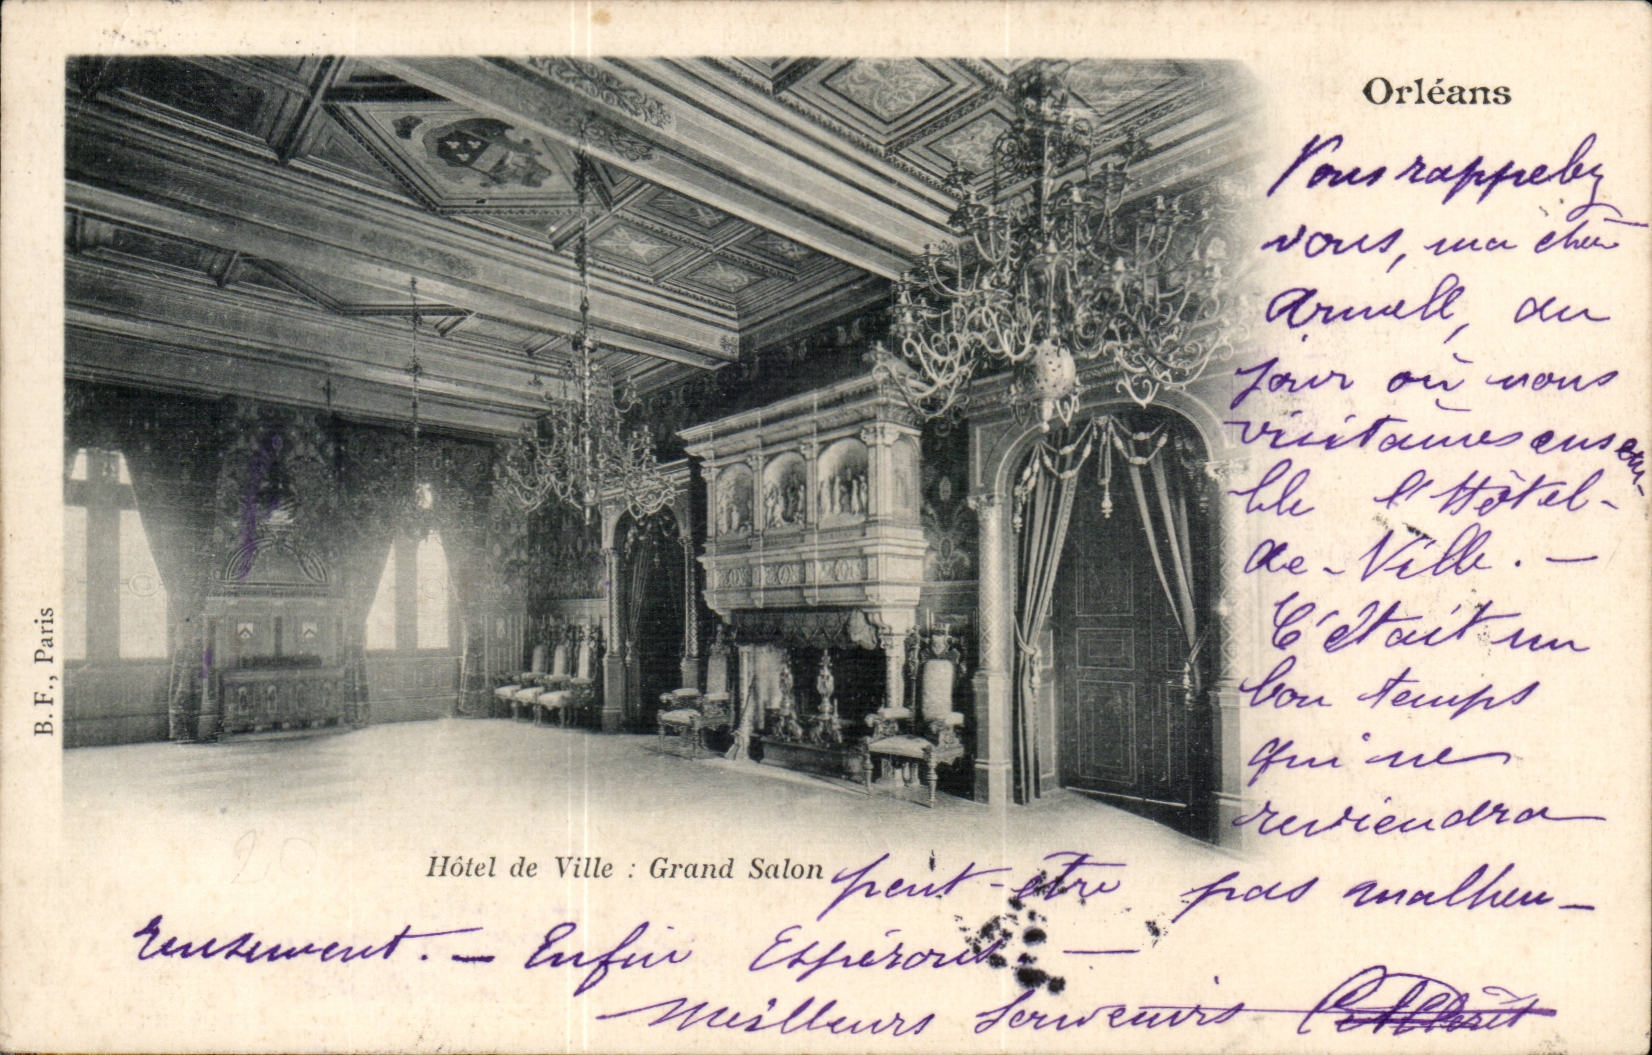 Orléans
Vous rappelez
vous, ma chère
Armelle, du
jour où nous
visitâmes ensem-
ble l'Hôtel-
de-Ville. —
C'était un
bon temps
qui ne
reviendra
Hôtel de Ville : Grand Salon
peut-être pas malheu-
reusement. — Enfin Espérons —
Meilleurs Souvenirs
B. F., Paris